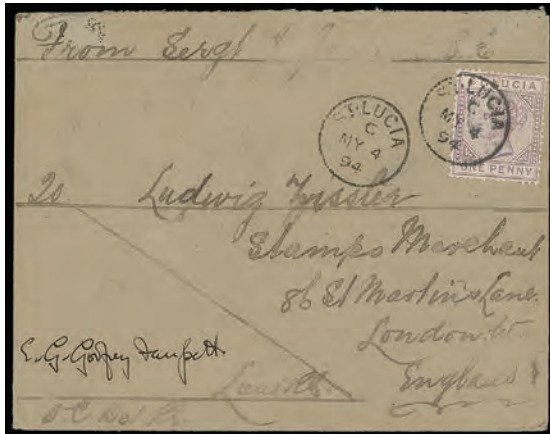 From Sergt
ST. LUCIA
C
MY 4
94
ST. LUCIA
C
MY 4
94
ST. LUCIA
ONE PENNY
To Ludwig
Stamps Merchant
86 St Martins Lane
London W
England
E. G. Godfrey Faussett